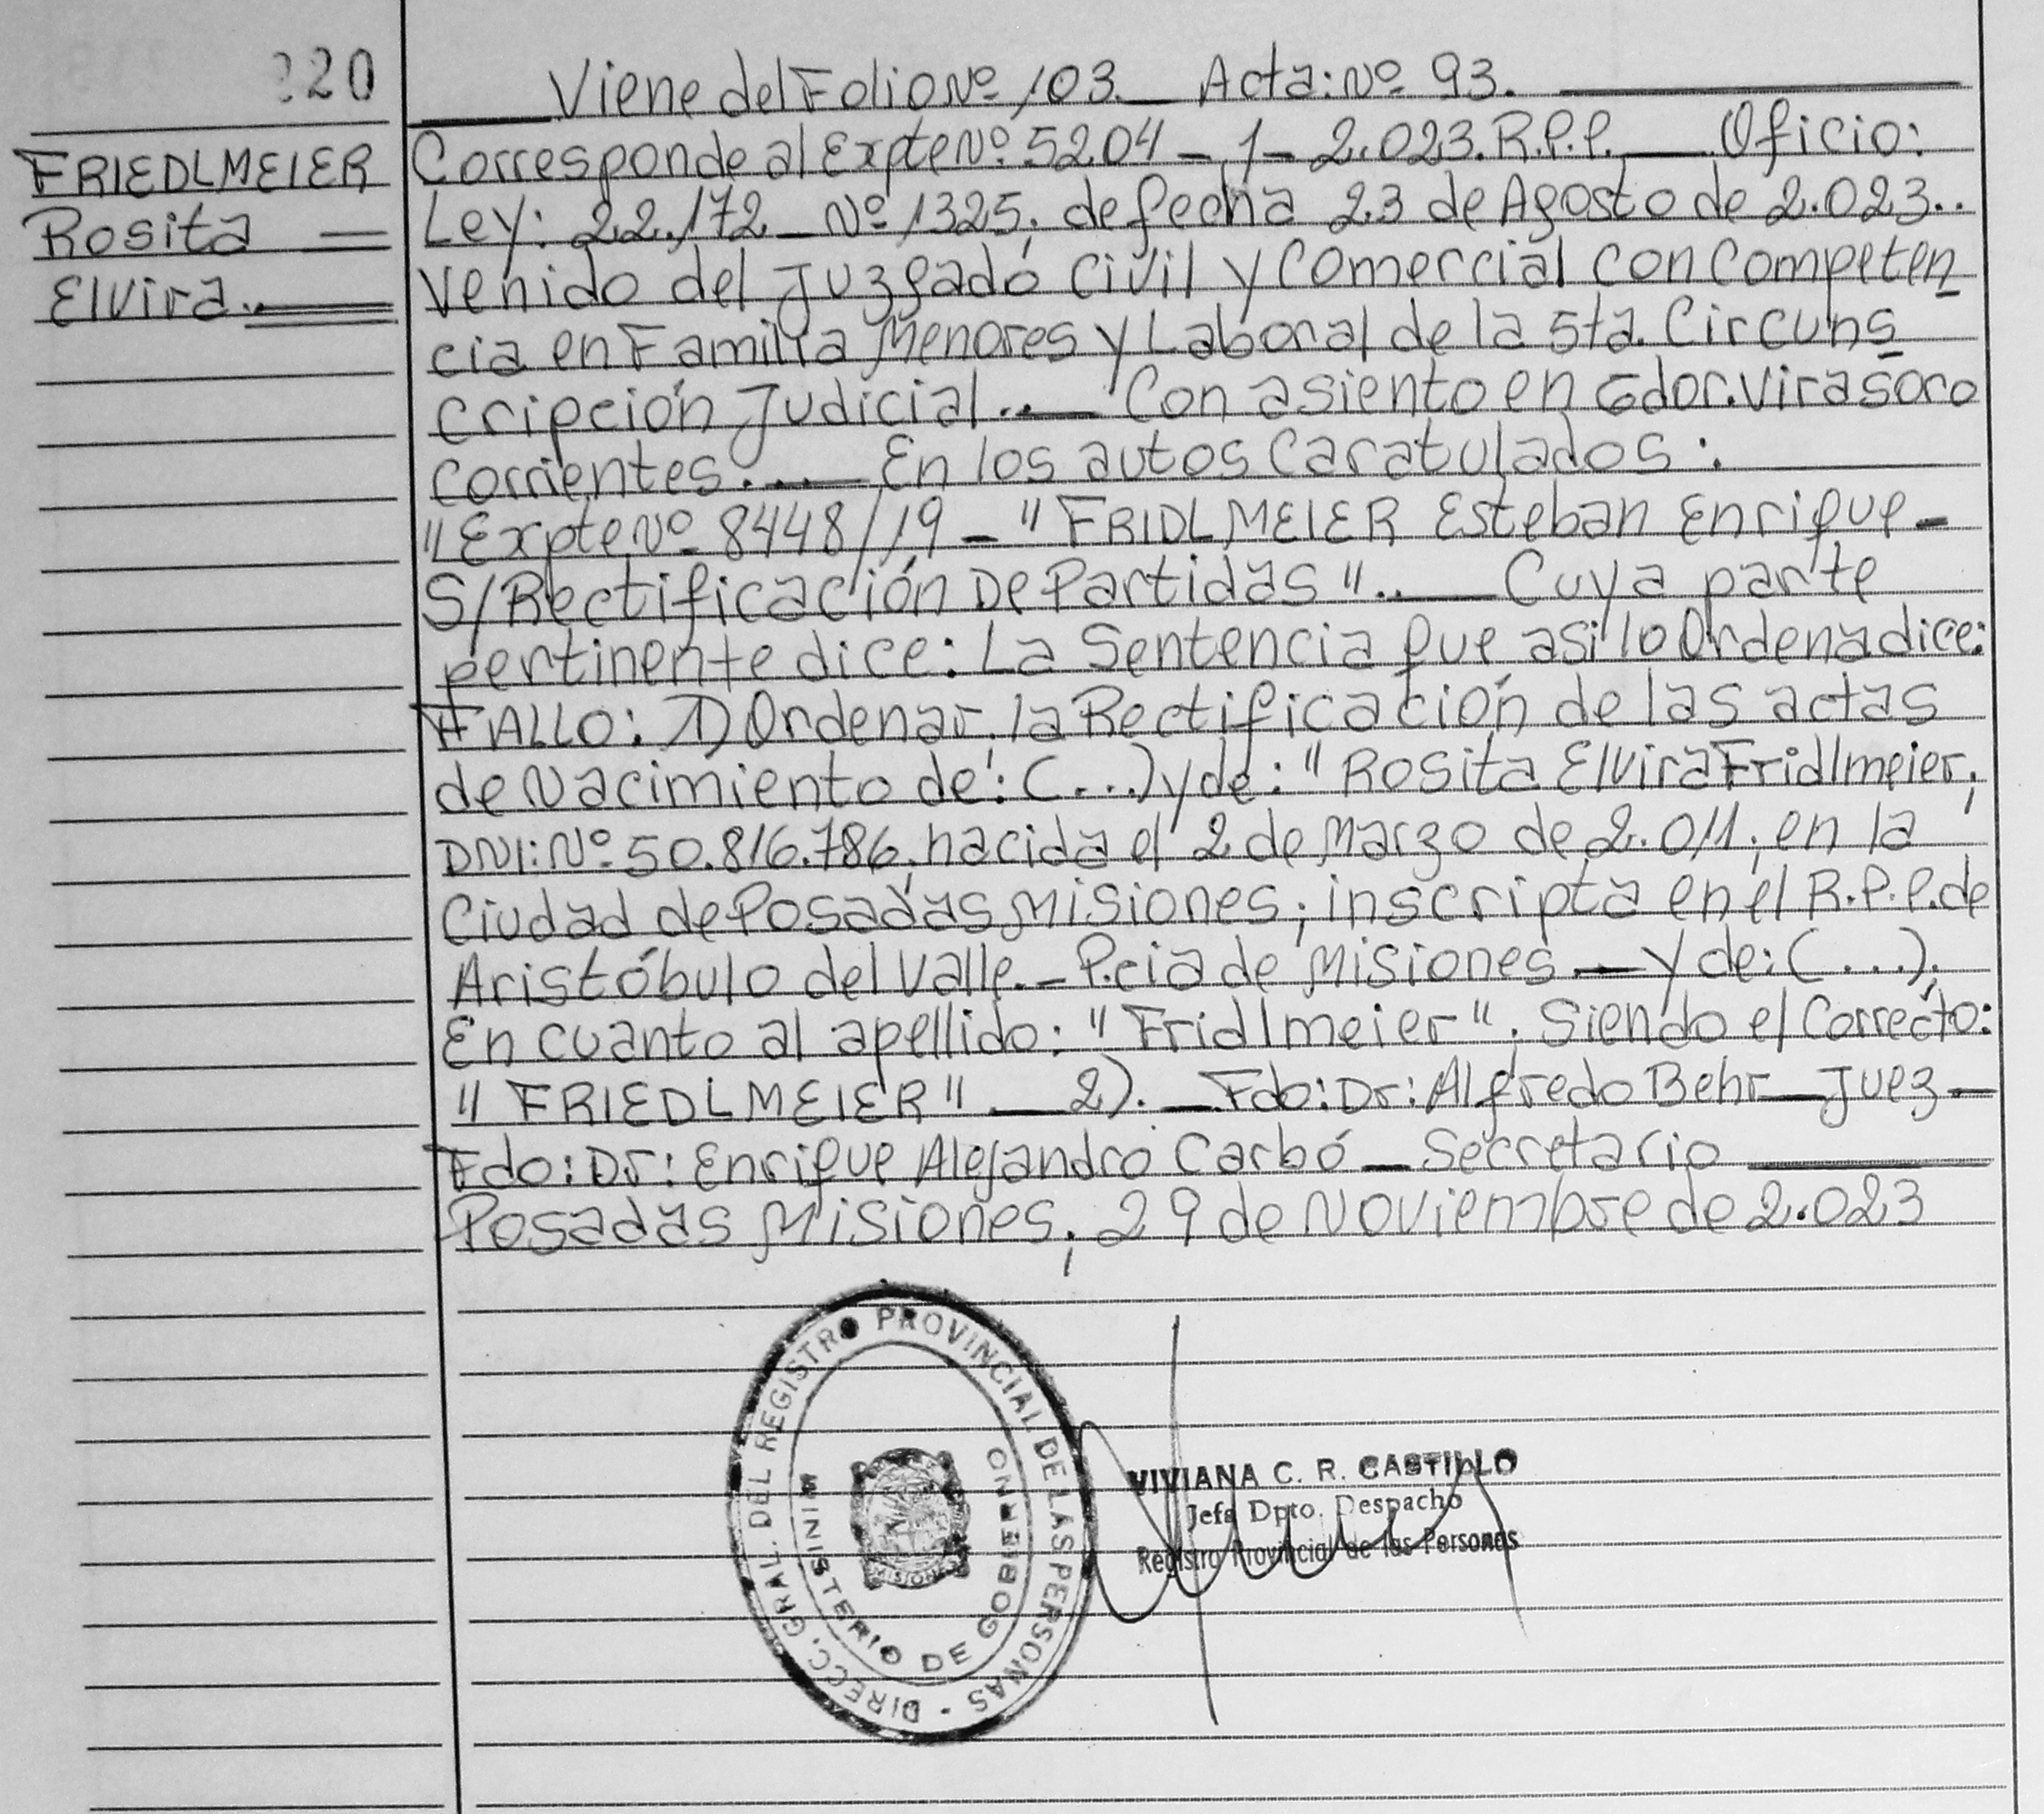 220
FRIEDLMEIER
Rosita
Elvira.
Viene del Folio Nº 103. Acta: Nº 93.
Corresponde al Expte Nº 5204 - 1 - 2.023. R.P.P. Oficio:
Ley: 22.172 - Nº 1325; de fecha 23 de Agosto de 2.023..
venido del Juzgado Civil y Comercial con Competen
cia en Familia Menores y Laboral de la 5ta. Circuns
cripción Judicial.. Con asiento en Gdor. Virasoro
Corrientes. En los autos Caratulados:
"Expte Nº 8448/19 - "FRIDLMEIER Esteban Enrique -
S/Rectificación De Partidas".. Cuya parte
pertinente dice: La Sentencia que asi lo Ordena dice:
FALLO: 1) Ordenar la Rectificación de las actas
de Nacimiento de: (...) y de: "Rosita Elvira Fridlmeier;
DNI: Nº 50.816.786, nacida el 2 de Marzo de 2.011; en la
Ciudad de Posadas Misiones; inscripta en el R.P.P. de
Aristóbulo del Valle. - Pcia de Misiones - y de: (...);
En cuanto al apellido: "Fridlmeier"; Siendo el Correcto:
"FRIEDLMEIER" - 2). - Fdo: Dr: Alfredo Behr - Juez -
Fdo: Dr: Enrique Alejandro Carbó - Secretario
Posadas Misiones; 29 de Noviembre de 2.023
DIRECC. GRAL. DEL REGISTRO PROVINCIAL DE LAS PERSONAS -
MINISTERIO DE GOBIERNO
MISIONES
VIVIANA C. R. CASTILLO
Jefa Dpto. Despacho
Registro Provincial de las Personas